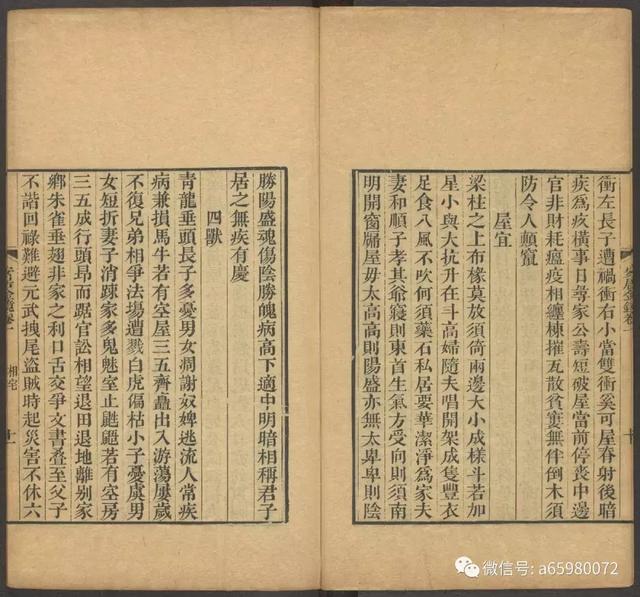 衝左長子遭禍衝右小當雙衝奚可屋脊射後暗
疾為疚橫事日尋家公壽短破屋當前停喪中邊
官非財耗瘟疫相纏棟摧瓦散貧窶無伴倒木須
防令人顛竄
屋宜
梁柱之上布椽莫放須倚兩邊大小成樣斗若加
星小與大抗升在斗高婦隨夫唱開架成隻豐衣
足食八風不吹何須藥石私居要華潔淨為家夫
妻和順子孝其爺寢則東首生氣方受向則須南
明開窗牖屋毋太高高則陽盛亦無太卑卑則陰
勝陽盛魂傷陰勝魄病高下適中明暗相稱君子
居之無疾有慶
四獸
青龍垂頭長子多憂男女凋謝奴婢逃流人常疾
病兼損馬牛若有空屋三五齊矗出入游蕩屢歲
不復兄弟相爭法場遭戮白虎偏枯小子憂虞男
女短折妻子消疎家多鬼魅室止鼪鼯若有空房
三五成行頭昂而踞官訟相望退田退地離別家
鄉朱雀垂翅非家之利口舌交爭文書疊至父子
不諧回祿難避元武拽尾盜賊時起災害不休六
相宅
微信号: a65980072